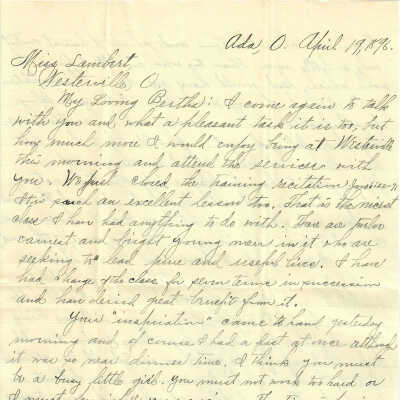 Ada, O. April 19, 1896.
Miss Lambert,
Westerville O.
My Loving Bertha: I come again to talk
with you and what a pleasant task it is too, but
how much more I would enjoy being at Westerville
this morning and attend the services with
you. We just closed the training recitation
It is such an excellent lesson too. That is the nicest
class I have had anything to do with. There are twelve
earnest and bright young men in it who are
seeking to lead pure and useful lives. I have
had charge of the class for seven times in succession
and have derived great benefit from it.
Your "inspiration" came to hand yesterday
morning and of course I had a fast at once although
it was so near dinner time. I think you must
be a busy little girl. You must not work too hard or
I must